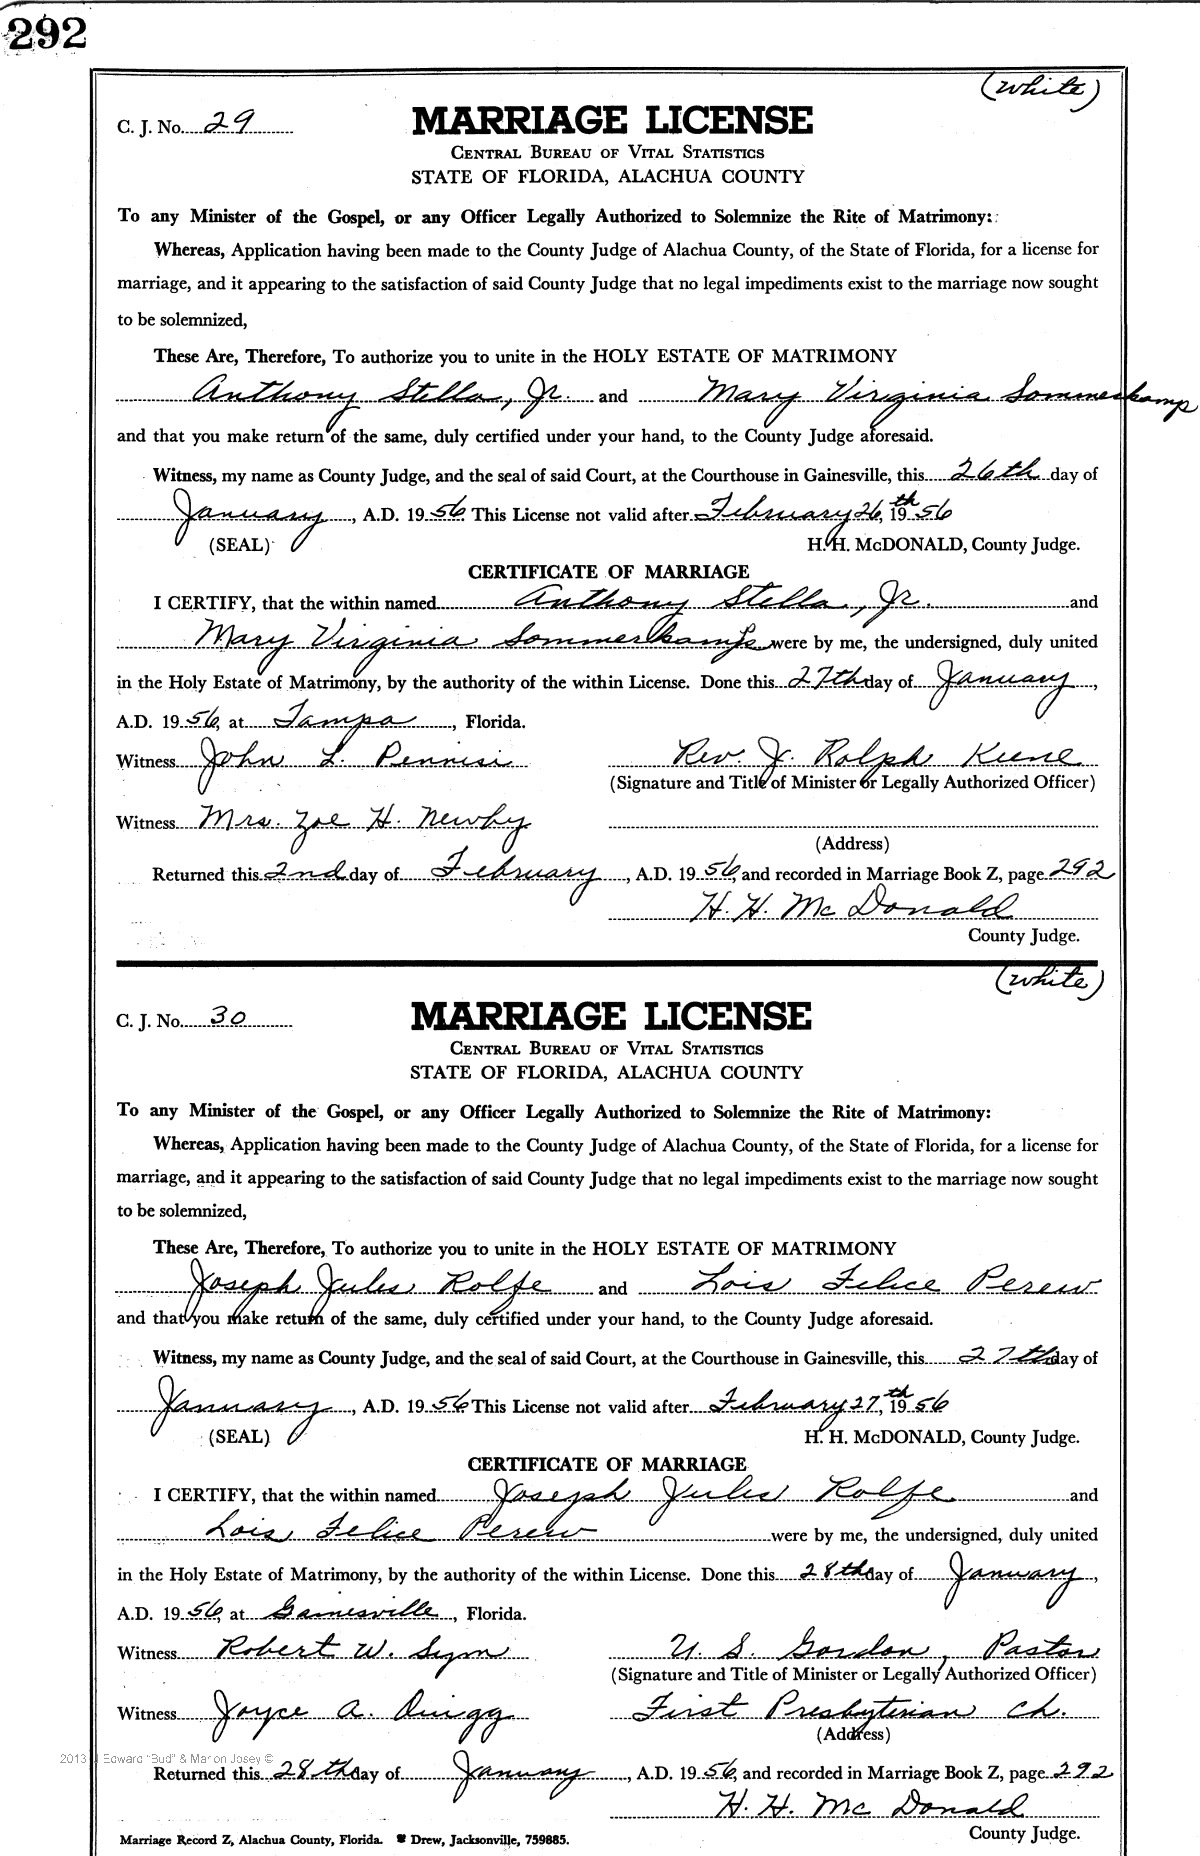 292
(white)
C. J. No. 29
MARRIAGE LICENSE
CENTRAL BUREAU OF VITAL STATISTICS
STATE OF FLORIDA, ALACHUA COUNTY
To any Minister of the Gospel, or any Officer Legally Authorized to Solemnize the Rite of Matrimony:
Whereas, Application having been made to the County Judge of Alachua County, of the State of Florida, for a license for
marriage, and it appearing to the satisfaction of said County Judge that no legal impediments exist to the marriage now sought
to be solemnized,
These Are, Therefore, To authorize you to unite in the HOLY ESTATE OF MATRIMONY
Anthony Stella, Jr. and Mary Virginia Sommerkamp
and that you make return of the same, duly certified under your hand, to the County Judge aforesaid.
Witness, my name as County Judge, and the seal of said Court, at the Courthouse in Gainesville, this 26th day of
January, A.D. 1956 This License not valid after February 26th, 1956
(SEAL) H. H. McDONALD, County Judge.
CERTIFICATE OF MARRIAGE
I CERTIFY, that the within named Anthony Stella, Jr. and
Mary Virginia Sommerkamp were by me, the undersigned, duly united
in the Holy Estate of Matrimony, by the authority of the within License. Done this 27th day of January,
A.D. 1956, at Tampa, Florida.
Witness John L. Pennisi Rev. J. Rolph Keene
(Signature and Title of Minister or Legally Authorized Officer)
Witness Mrs. Zoe H. Newby
(Address)
Returned this 2nd day of February, A.D. 1956, and recorded in Marriage Book Z, page 292
H. H. McDonald
County Judge.
(white)
C. J. No. 30
MARRIAGE LICENSE
CENTRAL BUREAU OF VITAL STATISTICS
STATE OF FLORIDA, ALACHUA COUNTY
To any Minister of the Gospel, or any Officer Legally Authorized to Solemnize the Rite of Matrimony:
Whereas, Application having been made to the County Judge of Alachua County, of the State of Florida, for a license for
marriage, and it appearing to the satisfaction of said County Judge that no legal impediments exist to the marriage now sought
to be solemnized,
These Are, Therefore, To authorize you to unite in the HOLY ESTATE OF MATRIMONY
Joseph Jules Rolfe and Lois Felice Perew
and that you make return of the same, duly certified under your hand, to the County Judge aforesaid.
Witness, my name as County Judge, and the seal of said Court, at the Courthouse in Gainesville, this 27th day of
January, A.D. 1956 This License not valid after February 27th, 1956
(SEAL) H. H. McDONALD, County Judge.
CERTIFICATE OF MARRIAGE
I CERTIFY, that the within named Joseph Jules Rolfe and
Lois Felice Perew were by me, the undersigned, duly united
in the Holy Estate of Matrimony, by the authority of the within License. Done this 28th day of January,
A.D. 1956, at Gainesville, Florida.
Witness Robert W. Sym U. S. Gordon, Pastor
(Signature and Title of Minister or Legally Authorized Officer)
Witness Joyce A. Quigg First Presbyterian Ch.
(Address)
2013 J Edward "Bud" & Marion Josey ©
Returned this 28th day of January, A.D. 1956, and recorded in Marriage Book Z, page 292
H. H. McDonald
County Judge.
Marriage Record Z, Alachua County, Florida. Drew, Jacksonville, 759885.